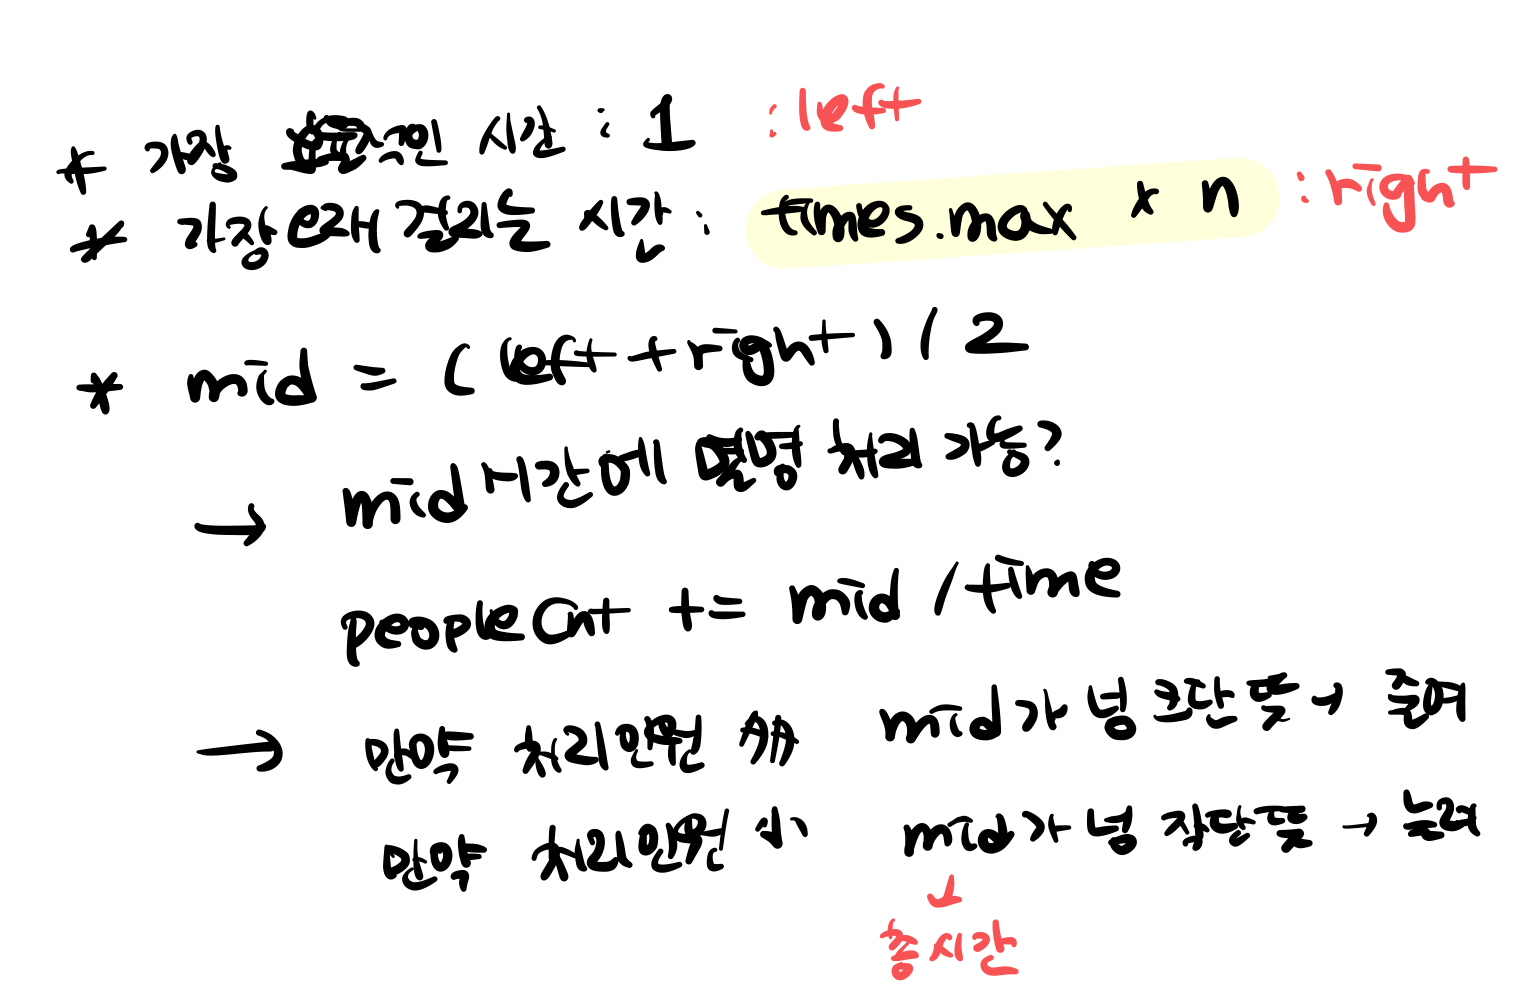 * 가장 효율적인 시간 : 1 : left
* 가장 오래 걸리는 시간 : times.max x n : right
* mid = ( left + right ) / 2
→ mid 시간에 몇명 처리 가능?
peopleCnt += mid / time
→ 만약 처리인원 많 mid가 넘 크단 뜻 → 줄여
만약 처리인원 小 mid가 넘 작단 뜻 → 늘려
↓
총 시간